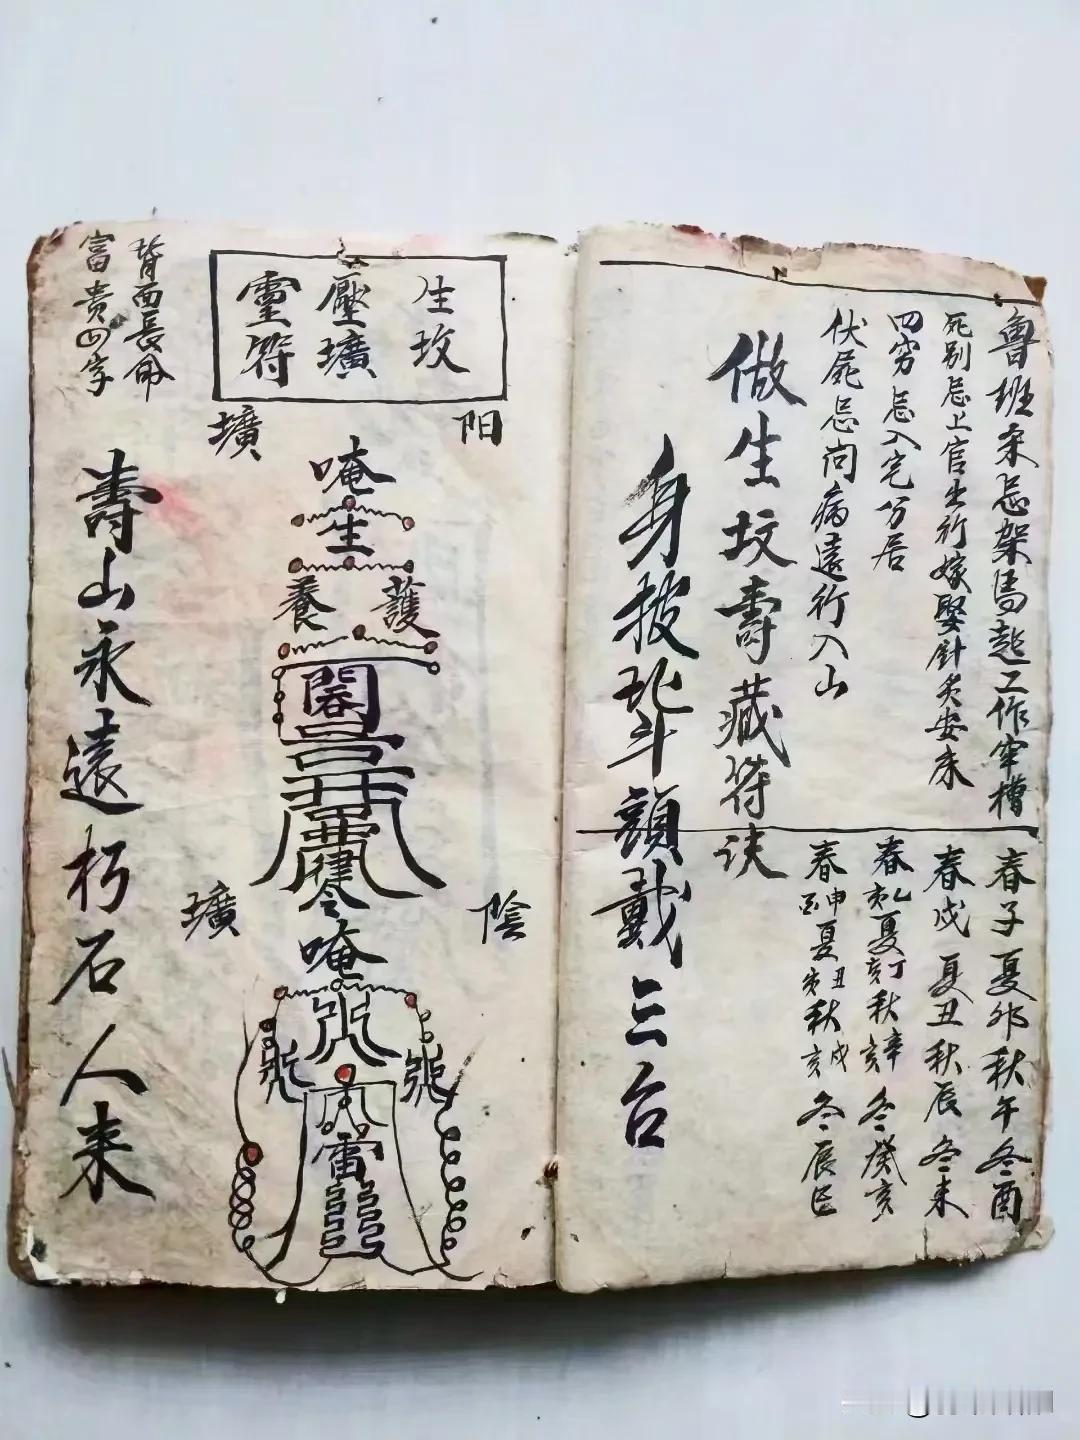 魯班杀忌架馬起工作窂槽
死别忌上官出行嫁娶針灸安床
四穷忌入宅分居
伏屍忌问病遠行入山
春子夏卯秋午冬酉
春戍夏丑秋辰冬未
春乙亥夏丁亥秋辛亥冬癸亥
做生坟壽藏符诀
身披北斗頭戴三台
生坟
壓壙
靈符
阳
壙
唵
生
養護
陰
壙
唵
雷
背面長命
富贵四字
壽山永遠朽石人来